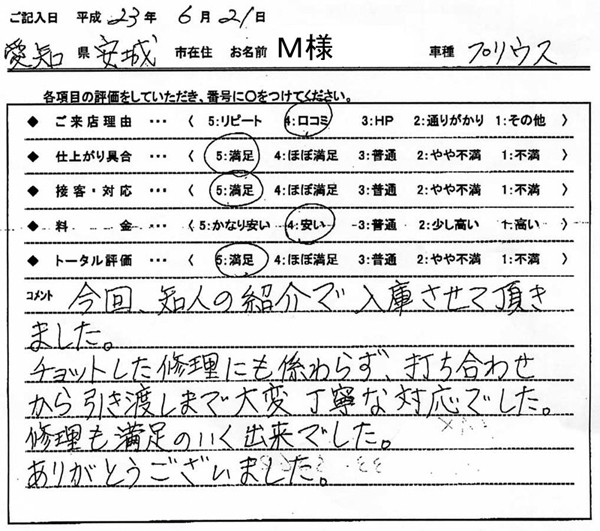 ご記入日 平成 23 年 6 月 21 日
愛知 県 安城 市在住 お名前 M様 車種 プリウス
各項目の評価をしていただき、番号に○をつけてください。
◆ ご来店理由 ・・・ 〈 5:リピート 4:口コミ 3:HP 2:通りがかり 1:その他 〉
◆ 仕上がり具合 ・・・ 〈 5:満足 4:ほぼ満足 3:普通 2:やや不満 1:不満 〉
◆ 接客・対応 ・・・ 〈 5:満足 4:ほぼ満足 3:普通 2:やや不満 1:不満 〉
◆ 料 金 ・・・ 〈 5:かなり安い 4:安い 3:普通 2:少し高い 1:高い 〉
◆ トータル評価 ・・・ 〈 5:満足 4:ほぼ満足 3:普通 2:やや不満 1:不満 〉
コメント 今回、知人の紹介で入庫させて頂き
ました。
チョットした修理にも係わらず、打ち合わせ
から引き渡しまで大変丁寧な対応でした。
修理も満足のいく出来でした。
ありがとうございました。